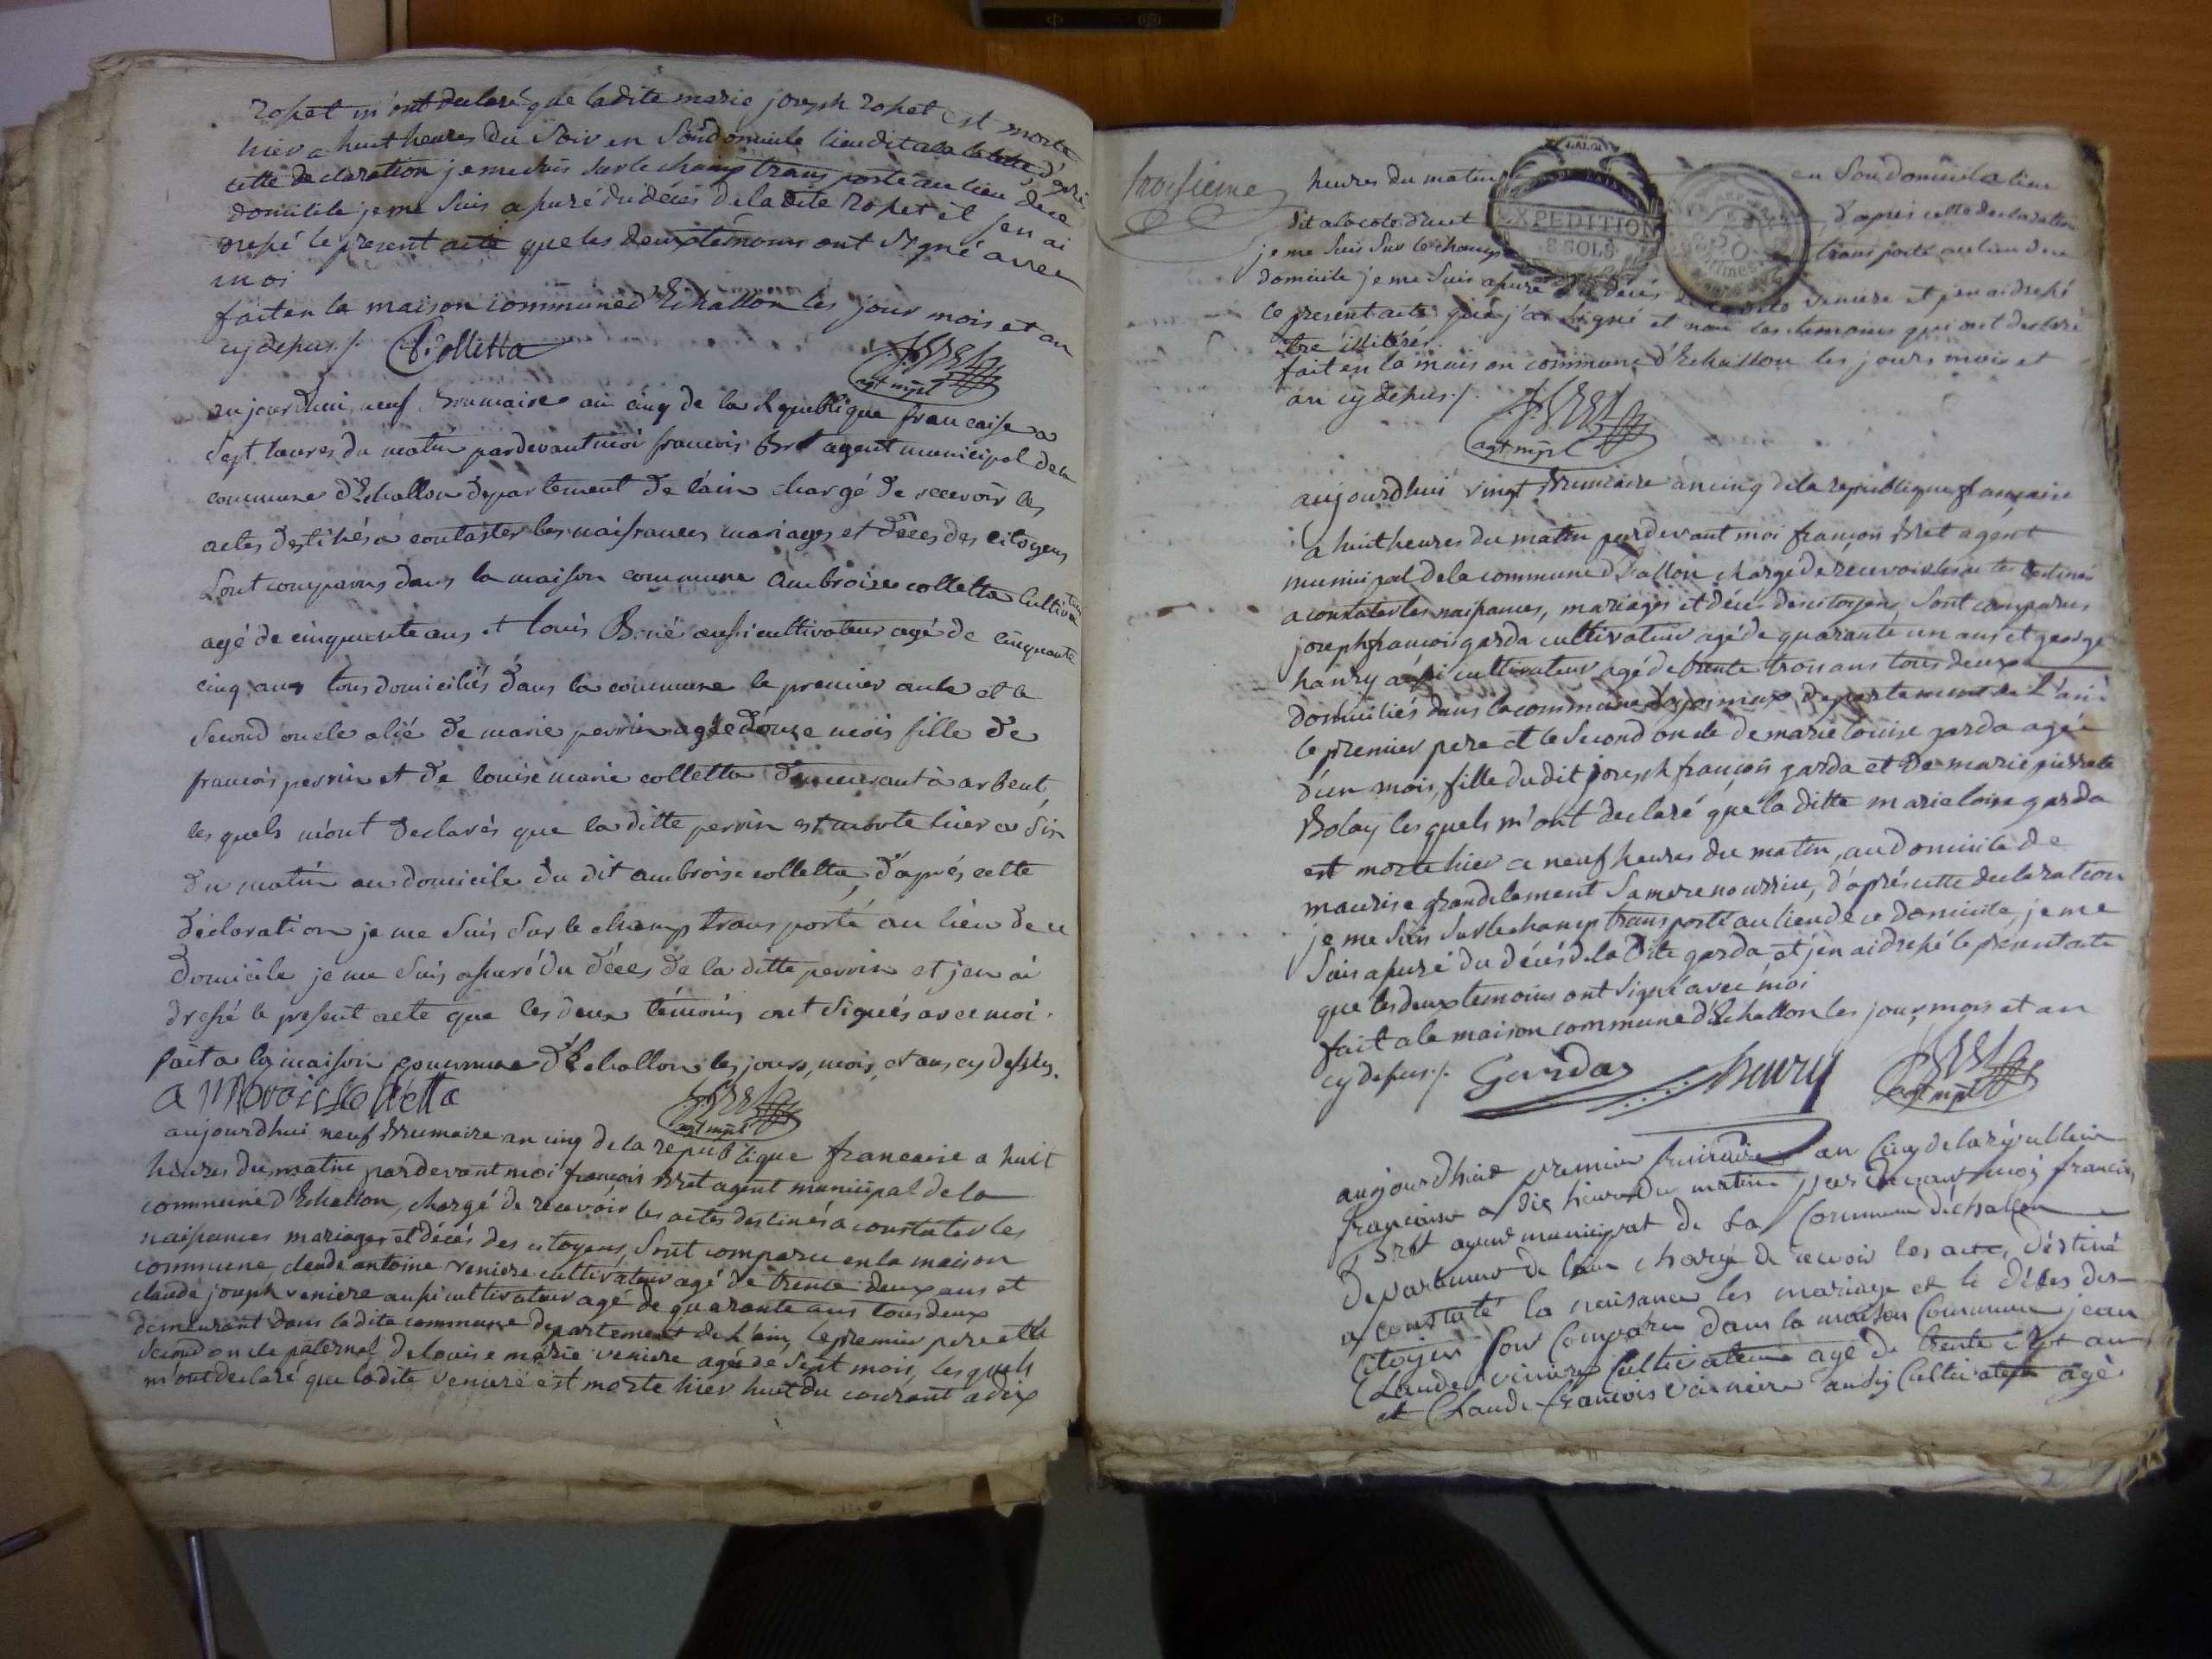 Rosset m'ont declaré que ladite marie joseph Rosset est morte
hier a huit heures du Soir en Son domicile lieudit d'après
cette declaration je me suis sur le champ transporté au lieu de ce
domicile je me suis assuré du décés de la dite Rosset et j'en ai
dressé le present acte que les deux témoins ont signé avec
moi
fait en la maison commune d'Echallon les jour mois et an
cy dessus ./. Colletta
agt mpl
aujourdhui neuf Brumaire an cinq de la Republique francaise a
Sept heures du matin pardevant moi francois Bret agent municipal de la
commune d'Echallon departement de l'ain chargé de recevoir les
actes destinés a constater les naissances mariages et décés des citoyens
Sont comparus dans la maison commune ambroise colletta cultivateur
agé de cinquante ans et louis aussi cultivateur agé de cinquante
cinq ans tous domiciliés dans la commune le premier oncle et le
Second oncle alié de marie perrin agée d'onze mois fille de
francois perrin et de louise marie colletta demeurant à arbent,
les quels m'ont declarés que la ditte perrin est morte hier a Six
du matin au domicile du dit ambroise colletta, d'aprés cette
déclaration je me suis sur le champ transporté au lieu de ce
domicile je me suis assuré du décés de la ditte perrin et j'en ai
dressé le present acte que les deux témoins ont signés avec moi.
fait a la maison commune d'Echallon les jours, mois, et ans, cy dessus.
a Mbroise colletta
agt mpl
aujourdhui neuf Brumaire an cinq de la republique francaise a huit
heures du matin pardevant moi françois Bret agent municipal de la
commune d'Echallon, chargé de recevoir les actes destinés a constater les
naissances mariages et décés des citoyens, Sont comparu en la maison
commune, claude antoine veniere cultivateur agé de trente deux ans et
claude joseph veniere aussi cultivateur agé de quarante ans tous deux
demeurant dans ladite commune departement de L'ain, le premier pere et le
Second oncle paternel de louise marie veniere agée de Sept mois, les quels
m'ont declaré que ladite veniere est morte hier huit du courant a dix
troisieme
heures du matin en Son domicile lieu
dit d'apres cette declaration
je me suis sur le champ transporté au lieu de ce
domicile je me suis assuré du décés de la dite veniere et j'en ai dressé
le present acte que j'ai signé et non les temoins qui ont declaré
être illitérés.
fait en la maison commune d'Echallon les jours mois et
an cy dessus ./.
EXPEDITION
8 SOLS
agt mpl
aujourdhui vingt Brumaire an cinq de la republique francaise
a huit heures du matin pardevant moi françois Bret agent
municipal de la commune d'Echallon chargé de recevoir les actes destinés
a constater les naissances, mariages et décés des citoyens, Sont comparus
joseph françois garda cultivateur agé de quarante un ans et george
hanry aussi cultivateur agé de trente trois ans tous deux
domiciliés dans la commune doyonnax departement de L'ain
le premier pere et le Second oncle de marie louise garda agée
d'un mois, fille du dit joseph françois garda et de marie pierrete
Bolay les quels m'ont declaré que la ditte marie loise garda
est morte hier a neuf heures du matin, au domicile de
maurise grandclement Sa mere nourrice, d'aprés cette declaration
je me suis sur le champ transporté au lieu de ce domicile, je me
Suis assuré du décés de la dite garda et j'en ai dressé le present acte
que les deux temoins ont signé avec moi
fait a la maison commune d'Echallon les jour, mois et an
cy dessus ./. Garda henry
agt mpl
aujourdhuit premier frimaire an Cinq de la republique
française a dix heures du matin par devant moy francois
Bret agent municipal de La Commune d'echallon
Departement de lain chargé de recevoir les acte, déstiné
a constaté la naisance les mariage et le déces des
Citoyen Son Comparu dans la maison Commune jean
Claude veniere Cultivateur agé de trente Sept an
et Claude francois vainiere ausy Cultivateur agé